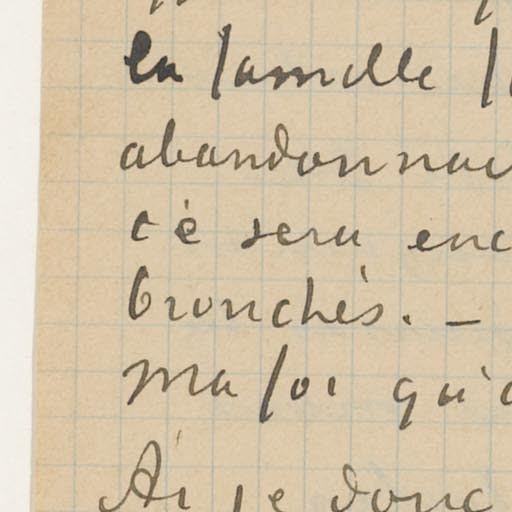 en famille
abandonnai
cè sera enc
bronchès. —
Ma foi qu'
Ai je donc